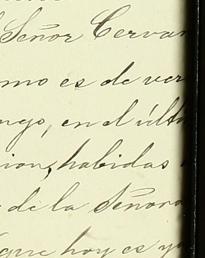 Señor Cervan
mo es de ver
ngo, en el últi
cion, habidas
de la Señora
que hoy es y